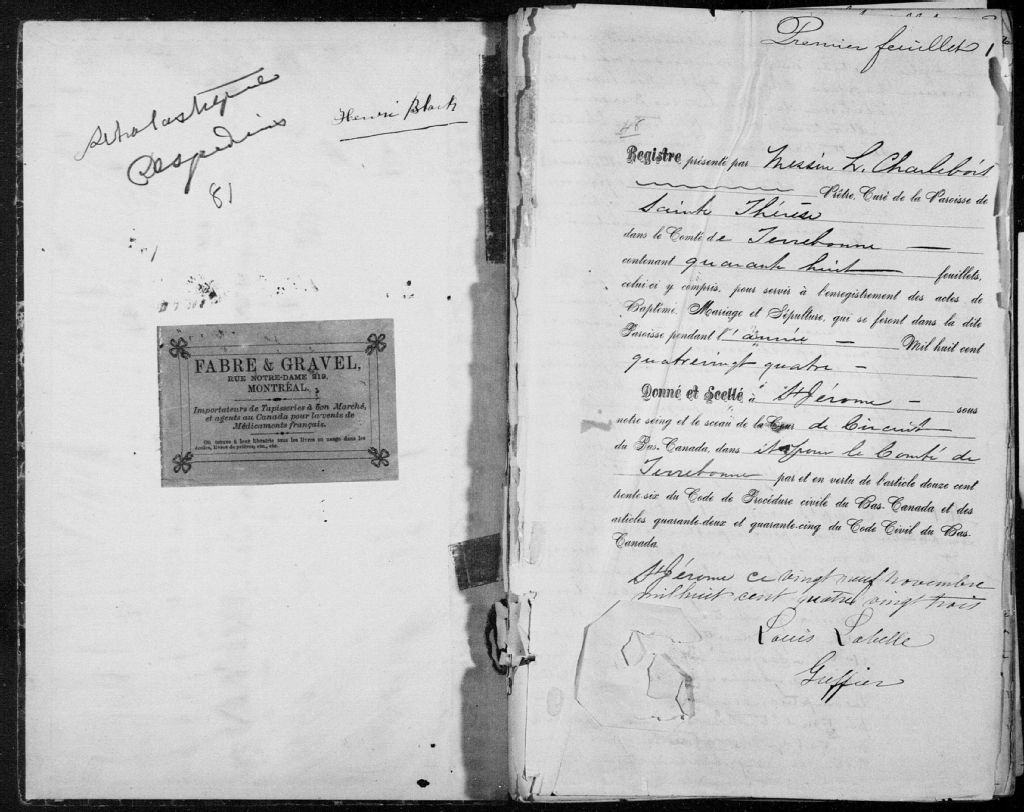 Scholastique
Despedins
81
Henri Black
FABRE & GRAVEL,
RUE NOTRE-DAME 219,
MONTRÉAL.
Importateurs de Tapisseries à bon Marché,
et agents au Canada pour la vente de
Médicaments français.
On trouve à leur librairie tous les livres en usage dans les
écoles, livres de prières, etc., etc.
Premier feuillet 1
48
Registre présenté par Messire L. Charlebois
Prêtre, Curé de la Paroisse de
Sainte Thérèse
dans le Comté de Terrebonne —
contenant quarante huit feuillets,
celui-ci y compris, pour servir à l'enregistrement des actes de
Baptême, Mariage et Sépulture, qui se feront dans la dite
Paroisse pendant l'année — Mil huit cent
quatrevingt quatre —
Donné et Scellé à St Jérome — sous
notre seing et le sceau de la Cour de Circuit
du Bas-Canada, dans et pour le Comté de
Terrebonne par et en vertu de l'article douze cent
trente-six du Code de Procédure civile du Bas-Canada et des
articles quarante-deux et quarante-cinq du Code Civil du Bas-
Canada.
St Jérome ce vingt neuf novembre
mil huit cent quatre vingt trois
Louis Labelle
Greffier